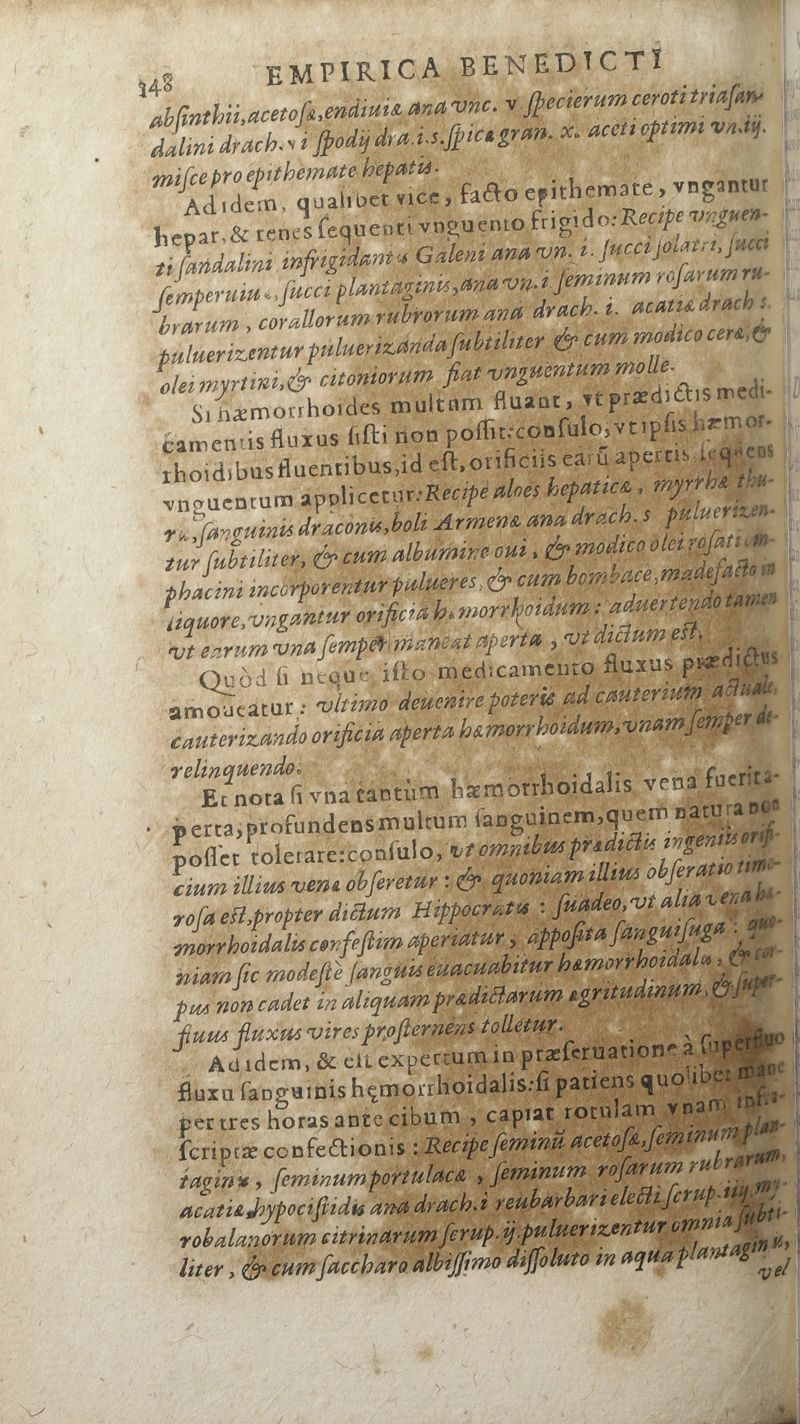 148 EMPIRICA BENEDICTI
abſinthii, acetoſæ, endiuiæ ana vnc. v ſpecierum ceroti triaſan-
dalini drach. vi ſpodij dra. i. s. ſpicæ gran. x. aceti optimi vn. iij.
miſce pro epithemate hepatis.
Ad idem, qualibet vice, facto epithemate, vngantur
hepar, & renes ſequenti vnguento frigido: Recipe vnguen-
ti ſandalini infrigidantis Galeni ana vn. i. ſucci ſolatri, ſucci
ſemperuiuæ, ſucci plantaginis, ana vn. i ſeminum roſarum ru-
brarum, corallorum rubrorum ana drach. i. acatiæ drach s.
puluerizentur puluerizanda ſubtiliter & cum modico ceræ, &
olei myrtini, & citoniorum fiat vnguentum molle.
Si hæmorrhoides multùm fluant, vt prædictis medi-
camentis fluxus ſiſti non poſſit: conſulo, vt ipſis hæmor-
rhoidibus fluentibus, id eſt, orificiis earū apertis ſequens
vnguentum applicetur: Recipe aloes hepaticæ, myrrhæ thu-
ris, ſanguinis draconis, boli Armenæ ana drach. s pulueriſen-
tur ſubtiliter, & cum albumine oui, & modico olei roſati om-
phacini incorporentur pulueres, & cum bombace, madefacto in
liquore, vngantur orificia hæmorrhoidum: aduertendo tamen
vt earum vna ſemper maneat aperta, vt dictum eſt.
Quòd ſi neque iſto medicamento fluxus prædictus
amoueatur: vltimo deuenire poteris ad cauterium actuale,
cauterizando orificia aperta hæmorrhoidum, vnam ſemper de-
relinquendo.
Et nota ſi vna tantùm hæmorrhoidalis vena fuerit a-
perta, profundens multum ſanguinem, quem natura non
poſſet tolerare: conſulo, vt omnibus prædictis ingeniis orifi-
cium illius venæ obſeretur: & quoniam illius obſeratio timo-
roſa eſt, propter dictum Hippocratis: ſuadeo, vt alia vena hæ-
morrhoidalis confeſtim aperiatur, appoſita ſanguiſuga: quo-
niam ſic modeſtè ſanguis euacuabitur hæmorrhoidalis, & cor-
pus non cadet in aliquam prædictarum ægritudinum, & ſuper-
fluus fluxus vires proſternens tolletur.
Ad idem, & eſt expertum in præſeruatione à ſuperfluo
fluxu ſanguinis hęmorrhoidalis: ſi patiens quolibet mane
per tres horas ante cibum, capiat rotulam vnam infra-
ſcriptæ confectionis: Recipe ſeminū acetoſæ, ſeminum plan-
taginis, ſeminum portulacæ, ſeminum roſarum rubrarum,
acatiæ, hypociſtidis ana drach. i reubarbari electi ſcrup. iiij. my-
robalanorum citrinarum ſcrup. ij. puluerizentur omnia ſubti-
liter, & cum ſaccharo albiſſimo diſſoluto in aqua plantaginis,
vel